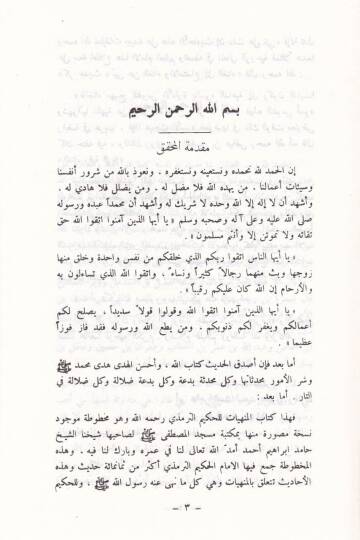 بسم الله الرحمن الرحيم
مقدمة المحقق
إن الحمد لله نحمده ونستعينه ونستغفره . ونعوذ بالله من شرور أنفسنا
وسيئات أعمالنا . من يهده الله فلا مضل له . ومن يضلل فلا هادي له .
وأشهد أن لا إله إلا الله وحده لا شريك له وأشهد أن محمداً عبده ورسوله
صلى الله عليه وعلى آله وصحبه وسلم « يا أيها الذين آمنوا اتقوا الله حق
تقاته ولا تموتن إلا وأنتم مسلمون » .
« يا أيها الناس اتقوا ربكم الذي خلقكم من نفس واحدة وخلق منها
زوجها وبث منهما رجالاً كثيراً ونساء ، واتقوا الله الذي تساءلون به
والأرحام إن الله كان عليكم رقيباً » .
« يا أيها الذين آمنوا اتقوا الله وقولوا قولاً سديداً ، يصلح لكم
أعمالكم ويغفر لكم ذنوبكم . ومن يطع الله ورسوله فقد فاز فوزاً
عظيما » .
أما بعد فإن أصدق الحديث كتاب الله ، وأحسن الهدى هدى محمد ﷺ
وشر الأمور محدثاتها وكل محدثة بدعة وكل بدعة ضلالة وكل ضلالة في
النار . أما بعد :
فهذا كتاب المنهيات للحكيم الترمذي رحمه الله وهو مخطوطة موجود
نسخة مصورة منها بمكتبة مسجد المصطفى ﷺ لصاحبها شيخنا الشيخ
حامد ابراهيم أحمد أمد الله تعالى لنا في عمره وبارك لنا فيه . وهذه
المخطوطة جمع فيها الامام الحكيم الترمذي أكثر من ثمانمائة حديث وهذه
الأحاديث تتعلق بالمنهيات وهي كل ما نهى عنه رسول الله ﷺ ، وللحكيم
– ٣ –